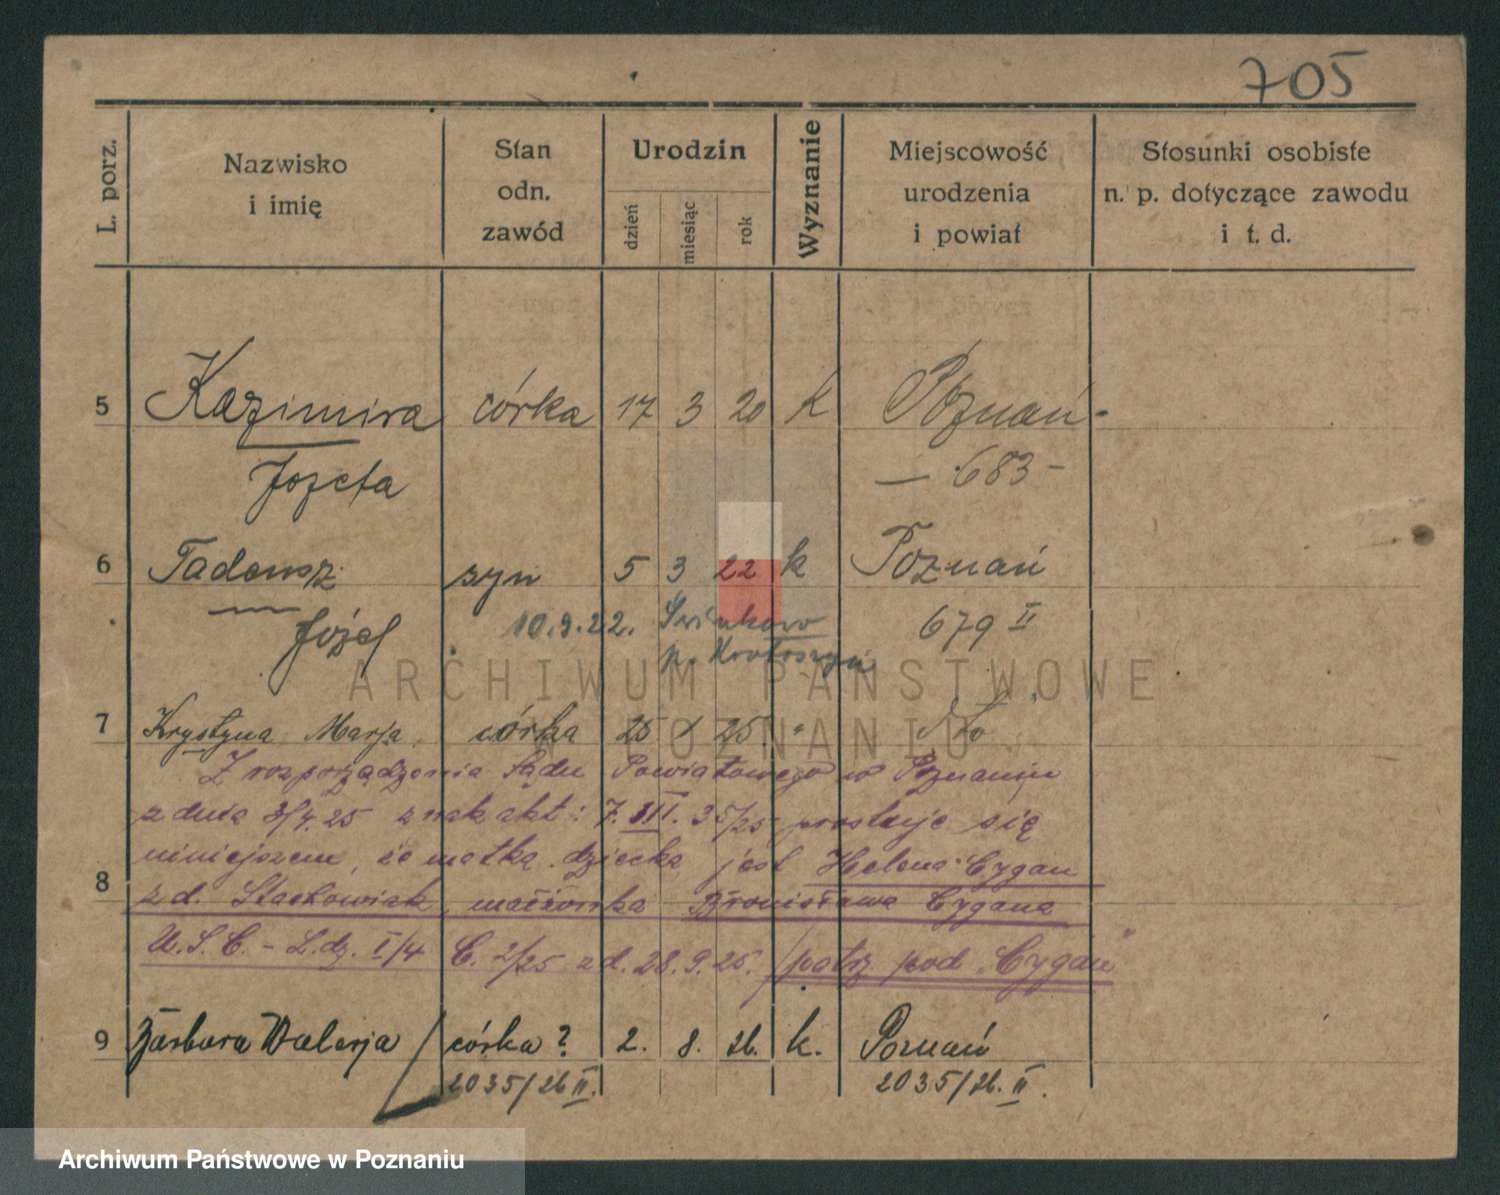 705
L. porz.
Nazwisko
i imię
Stan
odn.
zawód
Urodzin
dzień
miesiąc
rok
Wyznanie
Miejscowość
urodzenia
i powiat
Stosunki osobiste
n. p. dotyczące zawodu
i t. d.
5 Kazimira córka 17 3 20 k Poznań
Jozefa — 683 —
6 Tadeusz syn 5 3 22 k Poznań
Józef 10.9.22. 679 II
p. Krotoszyn
ARCHIWUM PAŃSTWOWE
W POZNANIU
7 Krystyna Marja córka 25 25
Z rozporządzenia Sądu Powiatowego w Poznaniu
z dnia 3/4.25 znak akt: 7. III. 35/25 prostuje się
niniejszem, że matką dziecka jest Helena Cygan
8 z d. Stachowiak, małżonka Bronisława Cygana
U.S.C. - L.dz. I/4 C. 2/25 z d. 28.9.25. patrz pod „Cygan"
9 Barbara Walerja córka? 2. 8. 26. k. Poznań
2035/26 II. 2035/26. II.
Archiwum Państwowe w Poznaniu